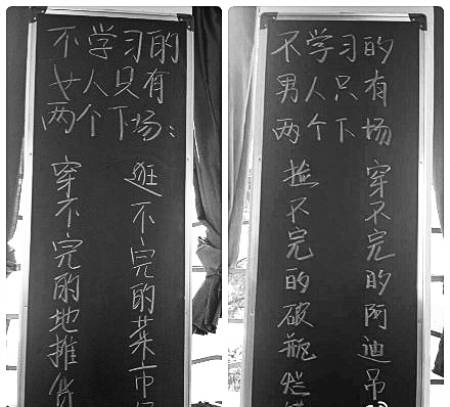 不学习的
女人只有
两个下场:
穿不完的地摊货
逛不完的菜市
不学习的
男人只有
两个下场
捡不完的破瓶烂
穿不完的阿迪吊